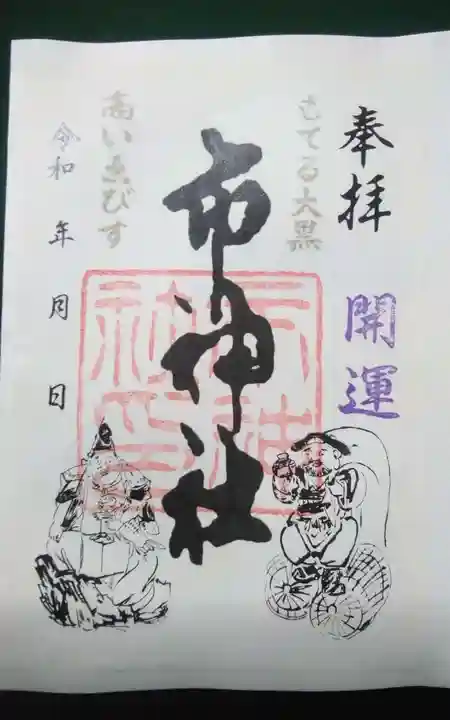 奉拝
開運
もてる大黒
市神社
高いゑびす
令和 年 月 日